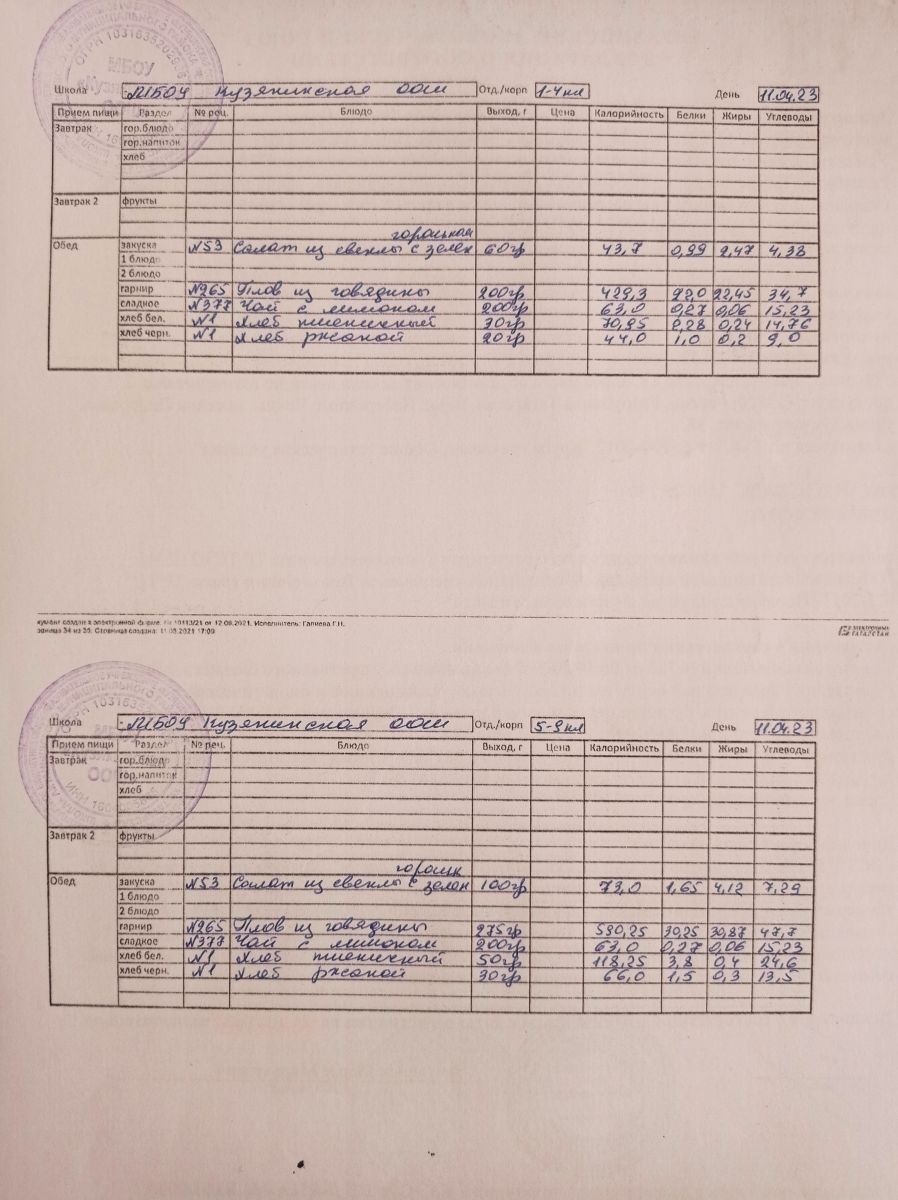 Школа МБОУ Кузякинская ООШ Отд./корп 1-4 кл День 11.04.23
Прием пищи Раздел № рец. Блюдо Выход, г Цена Калорийность Белки Жиры Углеводы
Завтрак гор.блюдо
гор.напиток
хлеб
Завтрак 2 фрукты
Обед закуска N53 Салат из свеклы с зелен 60гр 43,7 0,99 2,47 4,38
1 блюдо
2 блюдо
гарнир N265 Плов из говядины 200гр 429,3 22,0 22,45 34,7
сладкое N377 Чай с лимоном 200гр 63,0 0,27 0,06 15,23
хлеб бел. N1 Хлеб пшеничный 30гр 70,95 2,28 0,24 14,76
хлеб черн. N1 Хлеб ржаной 20гр 44,0 1,0 0,2 9,0
12.08.2021. Исполнитель: Галиева Г.Н.
Страница создана: 11.08.2021 17:09
Школа МБОУ Кузякинская ООШ Отд./корп 5-9 кл День 11.04.23
Прием пищи Раздел № рец. Блюдо Выход, г Цена Калорийность Белки Жиры Углеводы
Завтрак гор.блюдо
гор.напиток
хлеб
Завтрак 2 фрукты
горошк
Обед закуска N53 Салат из свеклы с зелен 100гр 73,0 1,65 4,12 7,29
1 блюдо
2 блюдо
гарнир N265 Плов из говядины 275гр 590,25 30,25 30,87 47,7
сладкое N377 Чай с лимоном 200гр 63,0 0,27 0,06 15,23
хлеб бел. N1 Хлеб пшеничный 50гр 118,25 3,8 0,4 24,6
хлеб черн. N1 Хлеб ржаной 30гр 66,0 1,5 0,3 13,5